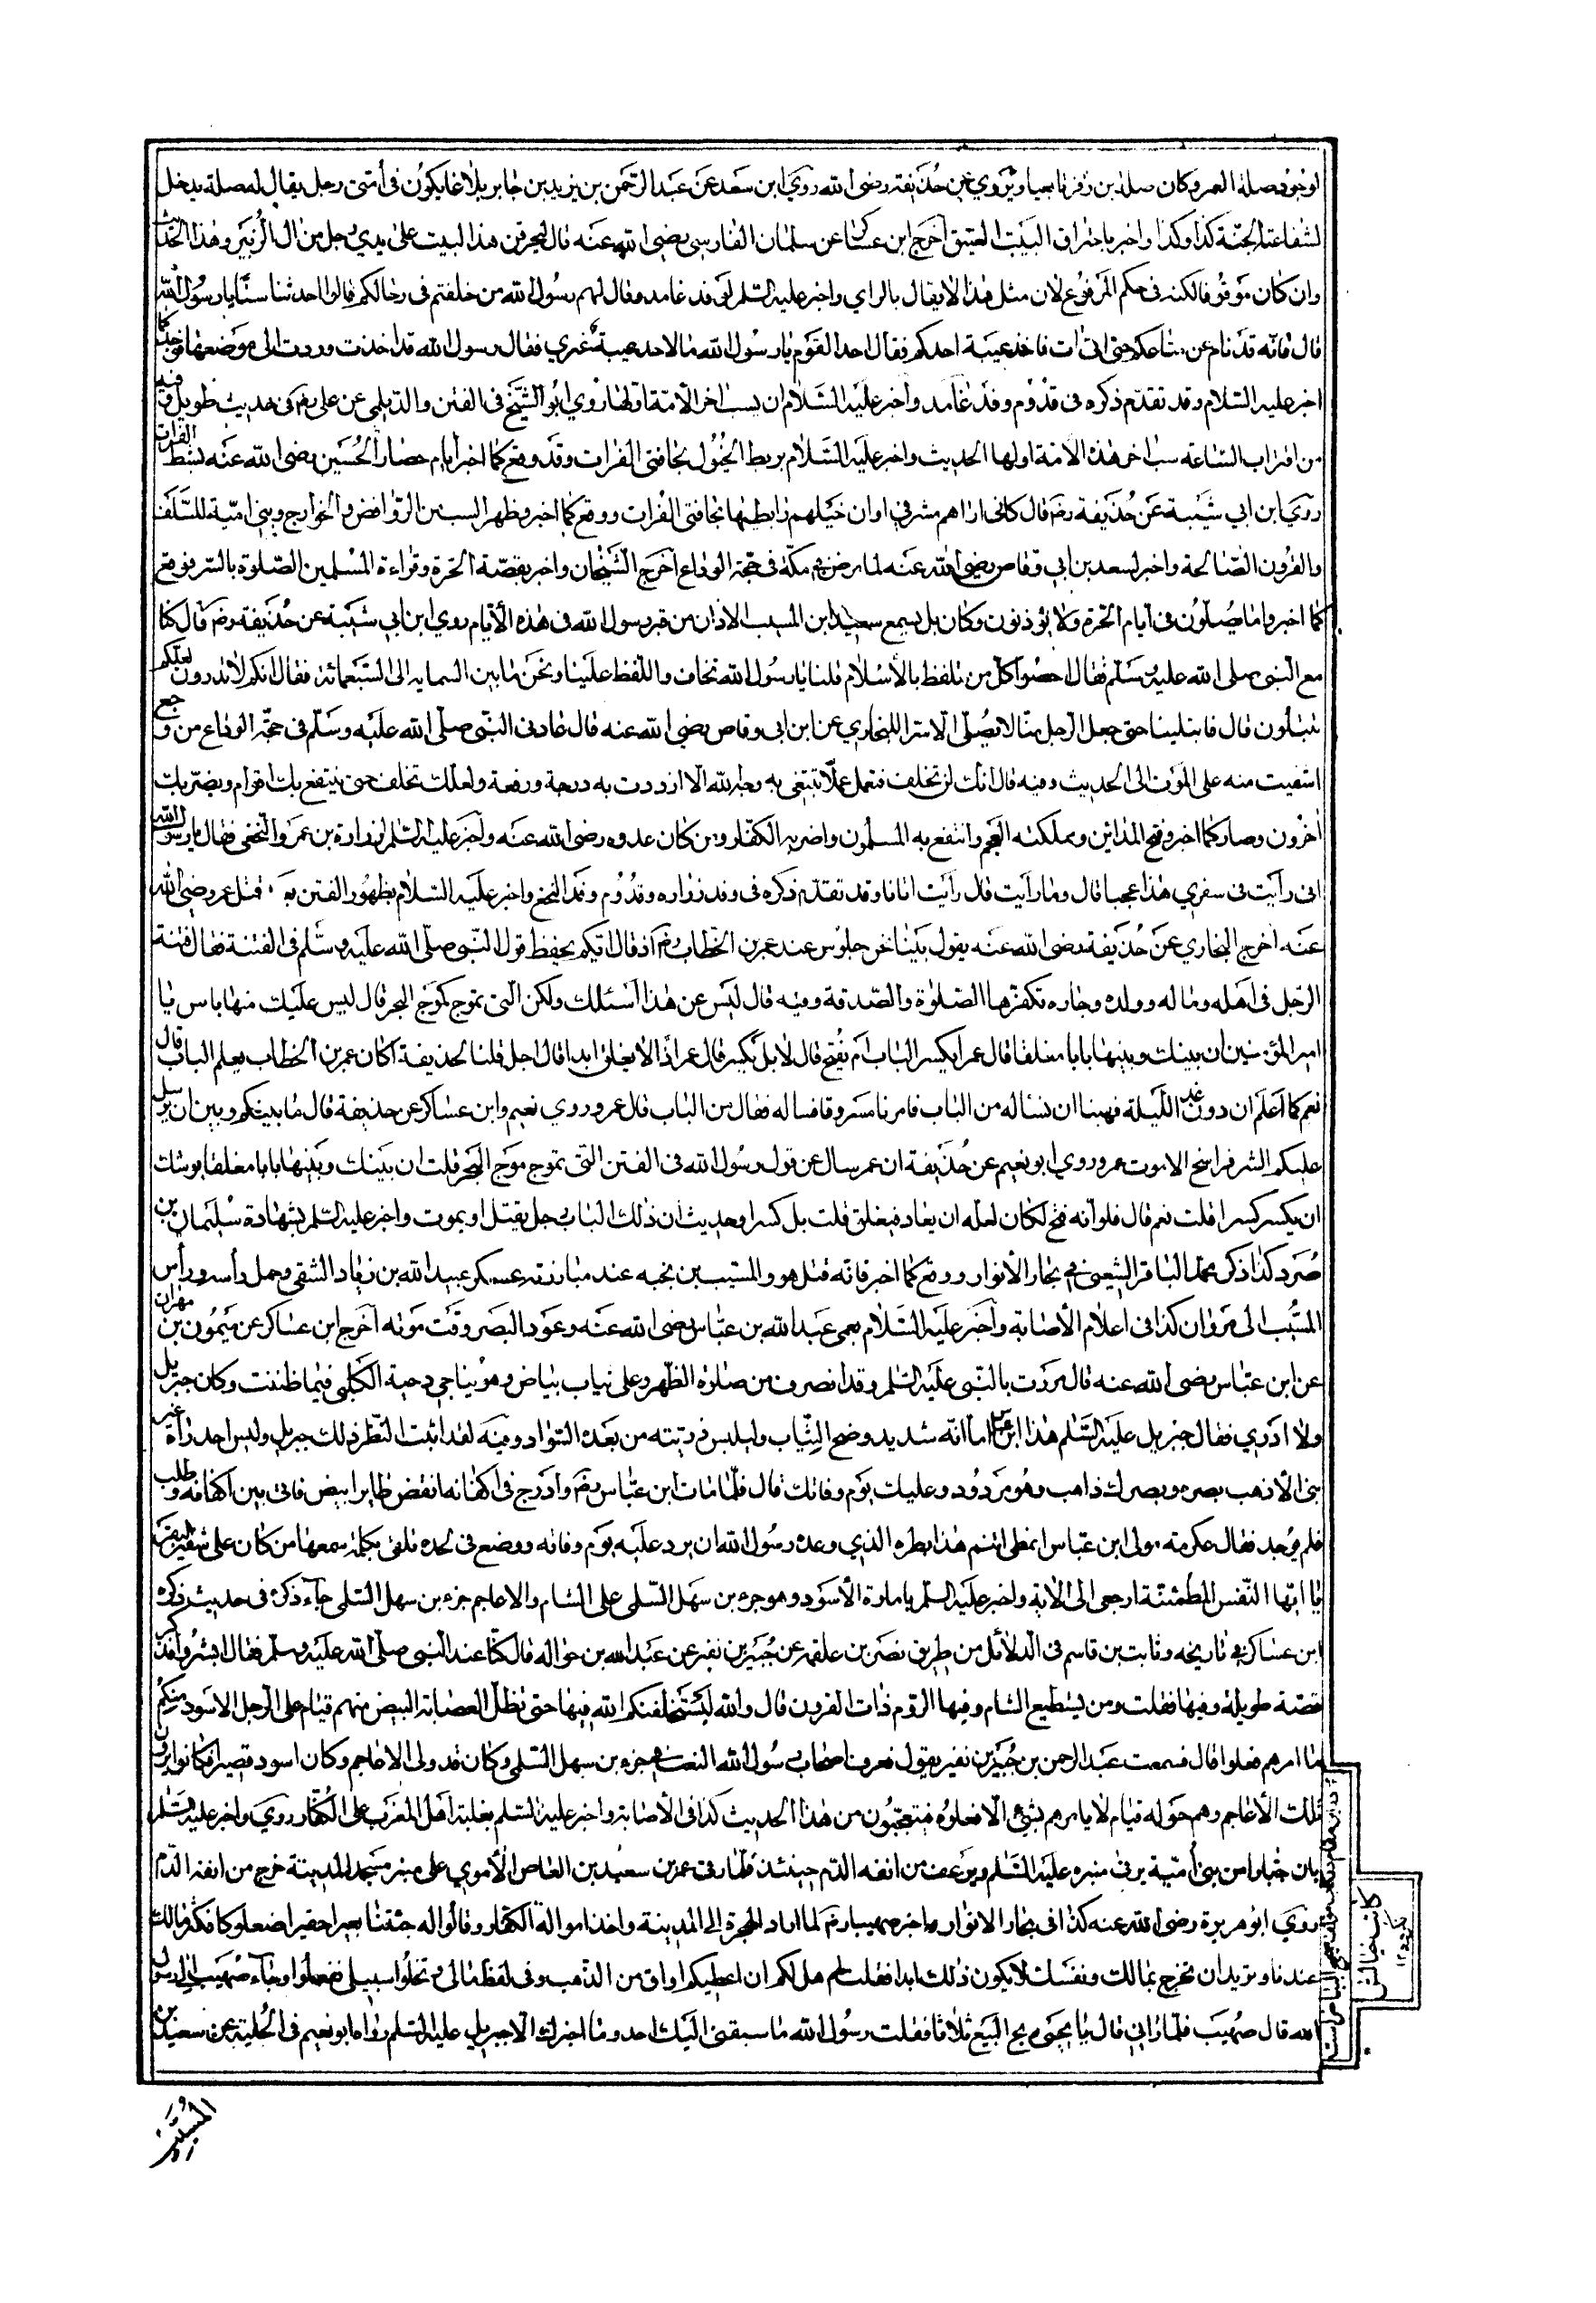 او نحو فصلة العمر وكان صلة بن زفر تابعيا ويروي عن حذيفة رضي الله روي ابن سعد عن عبد الرحمن بن يزيد بن جابر بلاغا يكون في أمتي رجل يقال له صلة يدخل
لشفاعته الجنة كذا وكذا واخبر باحتراق البيت العتيق اخرج ابن عساكر عن سلمان الفارسي رضي الله عنه قال ليحرقن هذا البيت على يدي رجل من ال الزبير وهذا الحديث
وان كان موقوفا لكنه في حكم المرفوع لان مثل هذا لا يقال بالراي واخبر عليه السلم لوفد غامد وقال لهم رسول الله من خلفتم في رحالكم قالوا احدثنا سنا يا رسول الله
قال فانه قد نام عن متاعكم حتى اتى ات فاخذ عيبة احدكم فقال احد القوم يا رسول الله ما لاحد عيبة غيري فقال رسول الله قد اخذت وردت الى موضعها فوجد كما
اخبر عليه السلام وقد تقدم ذكره في قدوم وفد غامد واخبر عليه السلام ان يسب اخر الامة اولها روي ابو الشيخ في الفتن والديلمي عن علي رضم في حديث طويل وفيه
من اقتراب الساعة سب اخر هذه الامة اولها الحديث واخبر عليه السلام بربط الخيول بحافتي الفرات وقد وقع كما اخبر ايام حصار الحسين رضي الله عنه بشط الفرات
روي ابن ابي شيبة عن حذيفة رضم قال كاني اراهم مشرفي اوان خيلهم رابطيها بحافتي الفرات ووقع كما اخبر وظهر السب من الروافض والخوارج وبني امية للسلف
والقرون الصالحة واخبر لسعد بن ابي وقاص رضي الله عنه لما مرض في مكة في حجة الوداع اخرج الشيخان واخبر بقصة الحرة وقراءة المسلمين الصلوة بالسر فوقع
كما اخبر وما يصلون في ايام الحرة ولا يؤذنون وكان بل يسمع سعيد ابن المسيب الاذان من قبر رسول الله في هذه الأيام روي ابن ابي شيبة عن حذيفة رضم قال كنا
مع النبي صلى الله عليه وسلم فقال احصوا كل من تلفظ بالأسلام قلنا يا رسول الله تخاف واللفظ علينا ونحن ما بين الستمايه الى السبعمائة فقال انكم لا تدرون لعلكم
تبتلون قال فابتلينا حتى جعل الرجل منا لا يصلي الا سرا للبخاري عن ابن ابي وقاص رضي الله عنه قال عادني النبي صلى الله عليه وسلم في حجة الوداع من وجع
اشفيت منه على الموت الى الحديث وفيه قال انك لن تخلف فتعمل عملا تبتغي به وجه الله الا ازددت به درجة ورفعة ولعلك تخلف حتى ينتفع بك اقوام ويضر بك
اخرون وصار كما اخبر وفتح المدائن ومملكته العجم وانتفع به المسلمون واضر به الكفار ومن كان عدوه رضي الله عنه واخبر عليه السلم لزرارة بن عمرو النخعي فقال يا رسول الله
اني رأيت في سفري هذا عجبا قال وما رأيت قال رأيت اتانا وقد تقدم ذكره في وفد زراره وقدوم وفد النخع واخبر عليه السلام بظهور الفتن بعد قتل عمر رضي الله
عنه اخرج البخاري عن حذيفة رضي الله عنه يقول بينا نحن جلوس عند عمر بن الخطاب رضم اذ قال ايكم يحفظ قول النبي صلى الله عليه وسلم في الفتنة فقال فتنة
الرجل في اهله وماله وولده وجاره تكفرها الصلوة والصدقة وفيه قال ليس عن هذا اسئلك ولكن التي تموج كموج البحر قال ليس عليك منها باس يا
امير المؤمنين ان بينك وبينها بابا مغلقا قال عمر ايكسر الباب ام يفتح قال لا بل يكسر قال عمر اذا لا يغلق ابدا قال اجل قلنا لحذيفة اكان عمر بن الخطاب يعلم الباب قال
نعم كما اعلم ان دون غد الليلة فهبنا ان نسئاله من الباب فامرنا مسروقا فساله فقال من الباب قال عمر وروي نعيم وابن عساكر عن حذيفة قال ما بينكم وبين ان يرسل
عليكم الشر فراسخ الا موت عمر وروي ابو نعيم عن حذيفة ان عمر سال عن قول رسول الله في الفتن التي تموج موج البحر قلت ان بينك وبينها بابا مغلقا يوشك
ان يكسر كسرا قلت نعم قال فلو انه فتح لكان لعله ان يعاد فيغلق قلت بل كسرا وحديث ان ذلك الباب رجل يقتل او يموت واخبر عليه السلم بشهادة سليمان بن
صرد كذا ذكر محمد الباقر الشيعي في بحار الأنوار ووقع كما اخبر فانه قتل هو والمسيب بن نجبه عند مبارزته عسكر عبيد الله بن زياد الشقي وحمل رأسه ورأس
المسيب الى مروان كذا في اعلام الأصابة واخبر عليه السلام بعمى عبد الله بن عباس رضي الله عنه وعود البصر وقت موته اخرج ابن عساكر عن ميمون بن مهران
عن ابن عباس رضي الله عنه قال مررت بالنبي عليه السلم وقد انصرف من صلوة الظهر وعلي ثياب بياض وهو يناجي دحية الكلبي فيما ظننت وكان جبريل
ولا ادري فقال جبريل عليه السلم هذا ابن عباس اما انه شديد وضح الثياب وليلبس ذريته من بعده السواد وفيه لقد اثبت النظر ذلك جبريل وليس احد رأه غير
نبي الا ذهب بصره وبصرك ذاهب وهو مردود وعليك يوم وفاتك قال فلما مات ابن عباس رضم وادرج في اكفانه انقض طاير ابيض فاتى بين اكفانه وطلب
فلم يوجد فقال عكرمة مولى ابن عباس احمقى انتم هذا بصره الذي وعده رسول الله ان يرد عليه يوم وفاته ووضع في لحده تلقى بكلمة سمعها من كان على شفير قبره
يا ايتها النفس المطمئنة ارجعي الى الاية واخبر عليه السلم بامارة الأسود وهو جزء بن سهل السلمي على الشام والاعاجم جزء بن سهل السلمي جاء ذكره في حديث ذكره
ابن عساكر في تاريخه وثابت بن قاسم في الدلائل من طريق نصر بن علقمه عن جبير بن نفير عن عبد الله بن حواله قال كنا عند النبي صلى الله عليه وسلم فقال ابشروا فذكر
قصة طويلة وفيها فقلت ومن يستطيع الشام وفيها الروم ذات القرون قال والله ليستخلفنكم الله فيها حتى تظل العصابة البيض منهم قيام على الرجل الاسود منكم
ما امرهم فعلوا قال فسمعت عبد الرحمن بن جبير بن نفير يقول فعرف اصحاب رسول الله النعت في جزء بن سهل السلمي وكان قد ولى الاعاجم وكان اسود قصيرا فكانوا يرون
تلك الأعاجم وهم حوله قيام لا يامرهم بشيء الا فعلوه فيتعجبون من هذا الحديث كذا في الأصابة واخبر عليه السلم بغلبة اهل المغرب على الكفار روي واخبر عليه السلم
بان جبارا من بني أمية يرقى منبره عليه السلم ويرعف من انفه الدم حينئذ فلما رقى عمر بن سعيد بن العاص الأموي على منبر مسجد المدينة خرج من انفه الدم
روي ابو هريرة رضي الله عنه كذا في بحار الانوار واخبر صهيبا رضم لما اراد الهجرة الى المدينة واخذ امواله الكفار وقالوا له جئتنا حقيرا صعلوكا فكثر مالك
عندنا وتريد ان تخرج بمالك ونفسك لا يكون ذلك ابدا فقلت لهم هل لكم ان اعطيكم اواق من الذهب وفي لفظ مالي وتخلوا سبيلي ففعلوا وجاء صهيب الى رسول
الله قال صهيب فلما راني قال يا ابا يحيى ربح البيع ثلاثا فقلت رسول الله ما سبقني اليك احد وما اخبرك الا جبريل عليه السلم رواه ابو نعيم في الحلية عن سعيد بن
المسيب